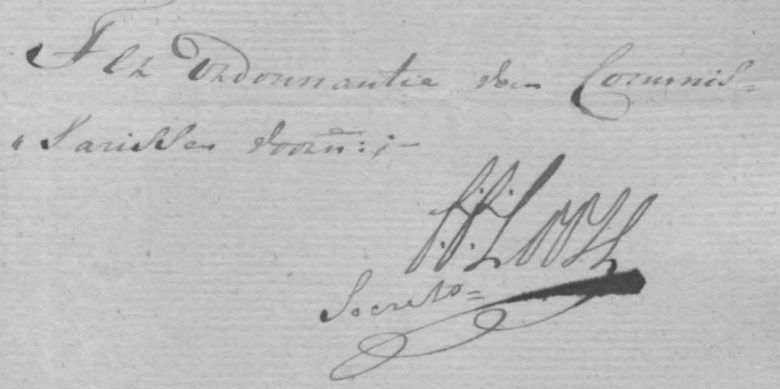 Ter Ordonnantie van Commis=
„Sarissen voorn:;–
Secrets=